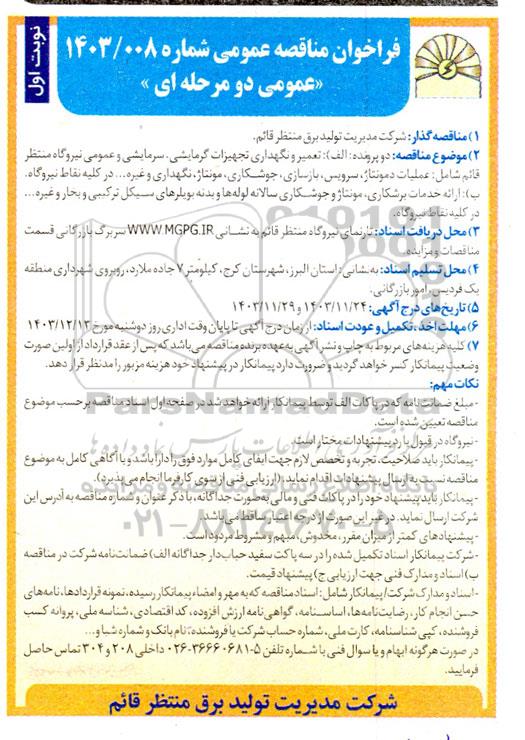 نوبت اول
فراخوان مناقصه عمومی شماره ۱۴۰۳/۰۰۸
«عمومی دو مرحله ای»
۱) مناقصه گذار: شرکت مدیریت تولید برق منتظر قائم.
۲) موضوع مناقصه: دو پرونده: الف): تعمیر و نگهداری تجهیزات گرمایشی، سرمایشی و عمومی نیروگاه منتظر
قائم شامل: عملیات دمونتاژ، سرویس، بازسازی، جوشکاری، مونتاژ، نگهداری و غیره... در کلیه نقاط نیروگاه.
ب): ارائه خدمات برشکاری، مونتاژ و جوشکاری سالانه لوله ها و بدنه بویلرهای سیکل ترکیبی و بخار و غیره...
در کلیه نقاط نیروگاه.
۳) محل دریافت اسناد: تارنمای نیروگاه منتظر قائم به نشانی WWW.MGPG.IR سربرگ بازرگانی قسمت
مناقصات و مزایده
۴) محل تسلیم اسناد: به نشانی: استان البرز، شهرستان کرج، کیلومتر ۷ جاده ملارد، روبروی شهرداری منطقه
یک فردیس، امور بازرگانی.
۵) تاریخ های درج آگهی: ۱۴۰۳/۱۱/۲۴ و ۱۴۰۳/۱۱/۲۹
۶) مهلت اخذ، تکمیل و عودت اسناد: از زمان درج آگهی تا پایان وقت اداری روز دوشنبه مورخ ۱۴۰۳/۱۲/۱۳
۷) کلیه هزینه های مربوط به چاپ و نشر آگهی به عهده برنده مناقصه می باشد که پس از عقد قرارداد از اولین صورت
وضعیت پیمانکار کسر خواهد گردید و ضرورت دارد پیمانکار در پیشنهاد خود هزینه مزبور را مدنظر قرار دهد.
نکات مهم:
- مبلغ ضمانت نامه که در پاکت الف توسط پیمانکار ارائه خواهد شد در صفحه اول اسناد مناقصه بر حسب موضوع
مناقصه تعیین شده است.
- نیروگاه در قبول یا رد پیشنهادات مختار است.
- پیمانکار باید صلاحیت، تجربه و تخصص لازم جهت ایفای کامل موارد فوق را دارا باشد و با آگاهی کامل به موضوع
مناقصه نسبت به ارسال پیشنهادات اقدام نماید. (ارزیابی فنی از سوی کارفرما انجام می پذیرد).
- پیمانکار باید پیشنهاد خود را در پاکات فنی و مالی به صورت جداگانه، با ذکر عنوان و شماره مناقصه به آدرس این
شرکت ارسال نماید. در غیر این صورت از درجه اعتبار ساقط می باشد.
- پیشنهادهای کمتر از میزان مقرر، مخدوش، مبهم و مشروط مردود است.
- شرکت پیمانکار اسناد تکمیل شده را در سه پاکت سفید حباب دار جداگانه الف) ضمانت نامه شرکت در مناقصه
ب) اسناد و مدارک فنی جهت ارزیابی ج) پیشنهاد قیمت.
- اسناد و مدارک شرکت/ پیمانکار شامل: اسناد مناقصه که به مهر و امضاء پیمانکار رسیده، نمونه قراردادها، نامه های
حسن انجام کار، رضایت نامه ها، اساسنامه، گواهی نامه ارزش افزوده، کد اقتصادی، شناسه ملی، پروانه کسب
فروشنده، کپی شناسنامه، کارت ملی، شماره حساب شرکت یا فروشنده: نام بانک و شماره شبا و...
در صورت هرگونه ابهام و یا سوال فنی با شماره تلفن ۵-۳۶۶۶۰۶۸۱-۰۲۶ داخلی ۲۰۸ و ۳۰۴ تماس حاصل
فرمایید.
شرکت مدیریت تولید برق منتظر قائم
ParsNamadData
۰۲۱-۸۸۳۴۹۶۷۰-۵